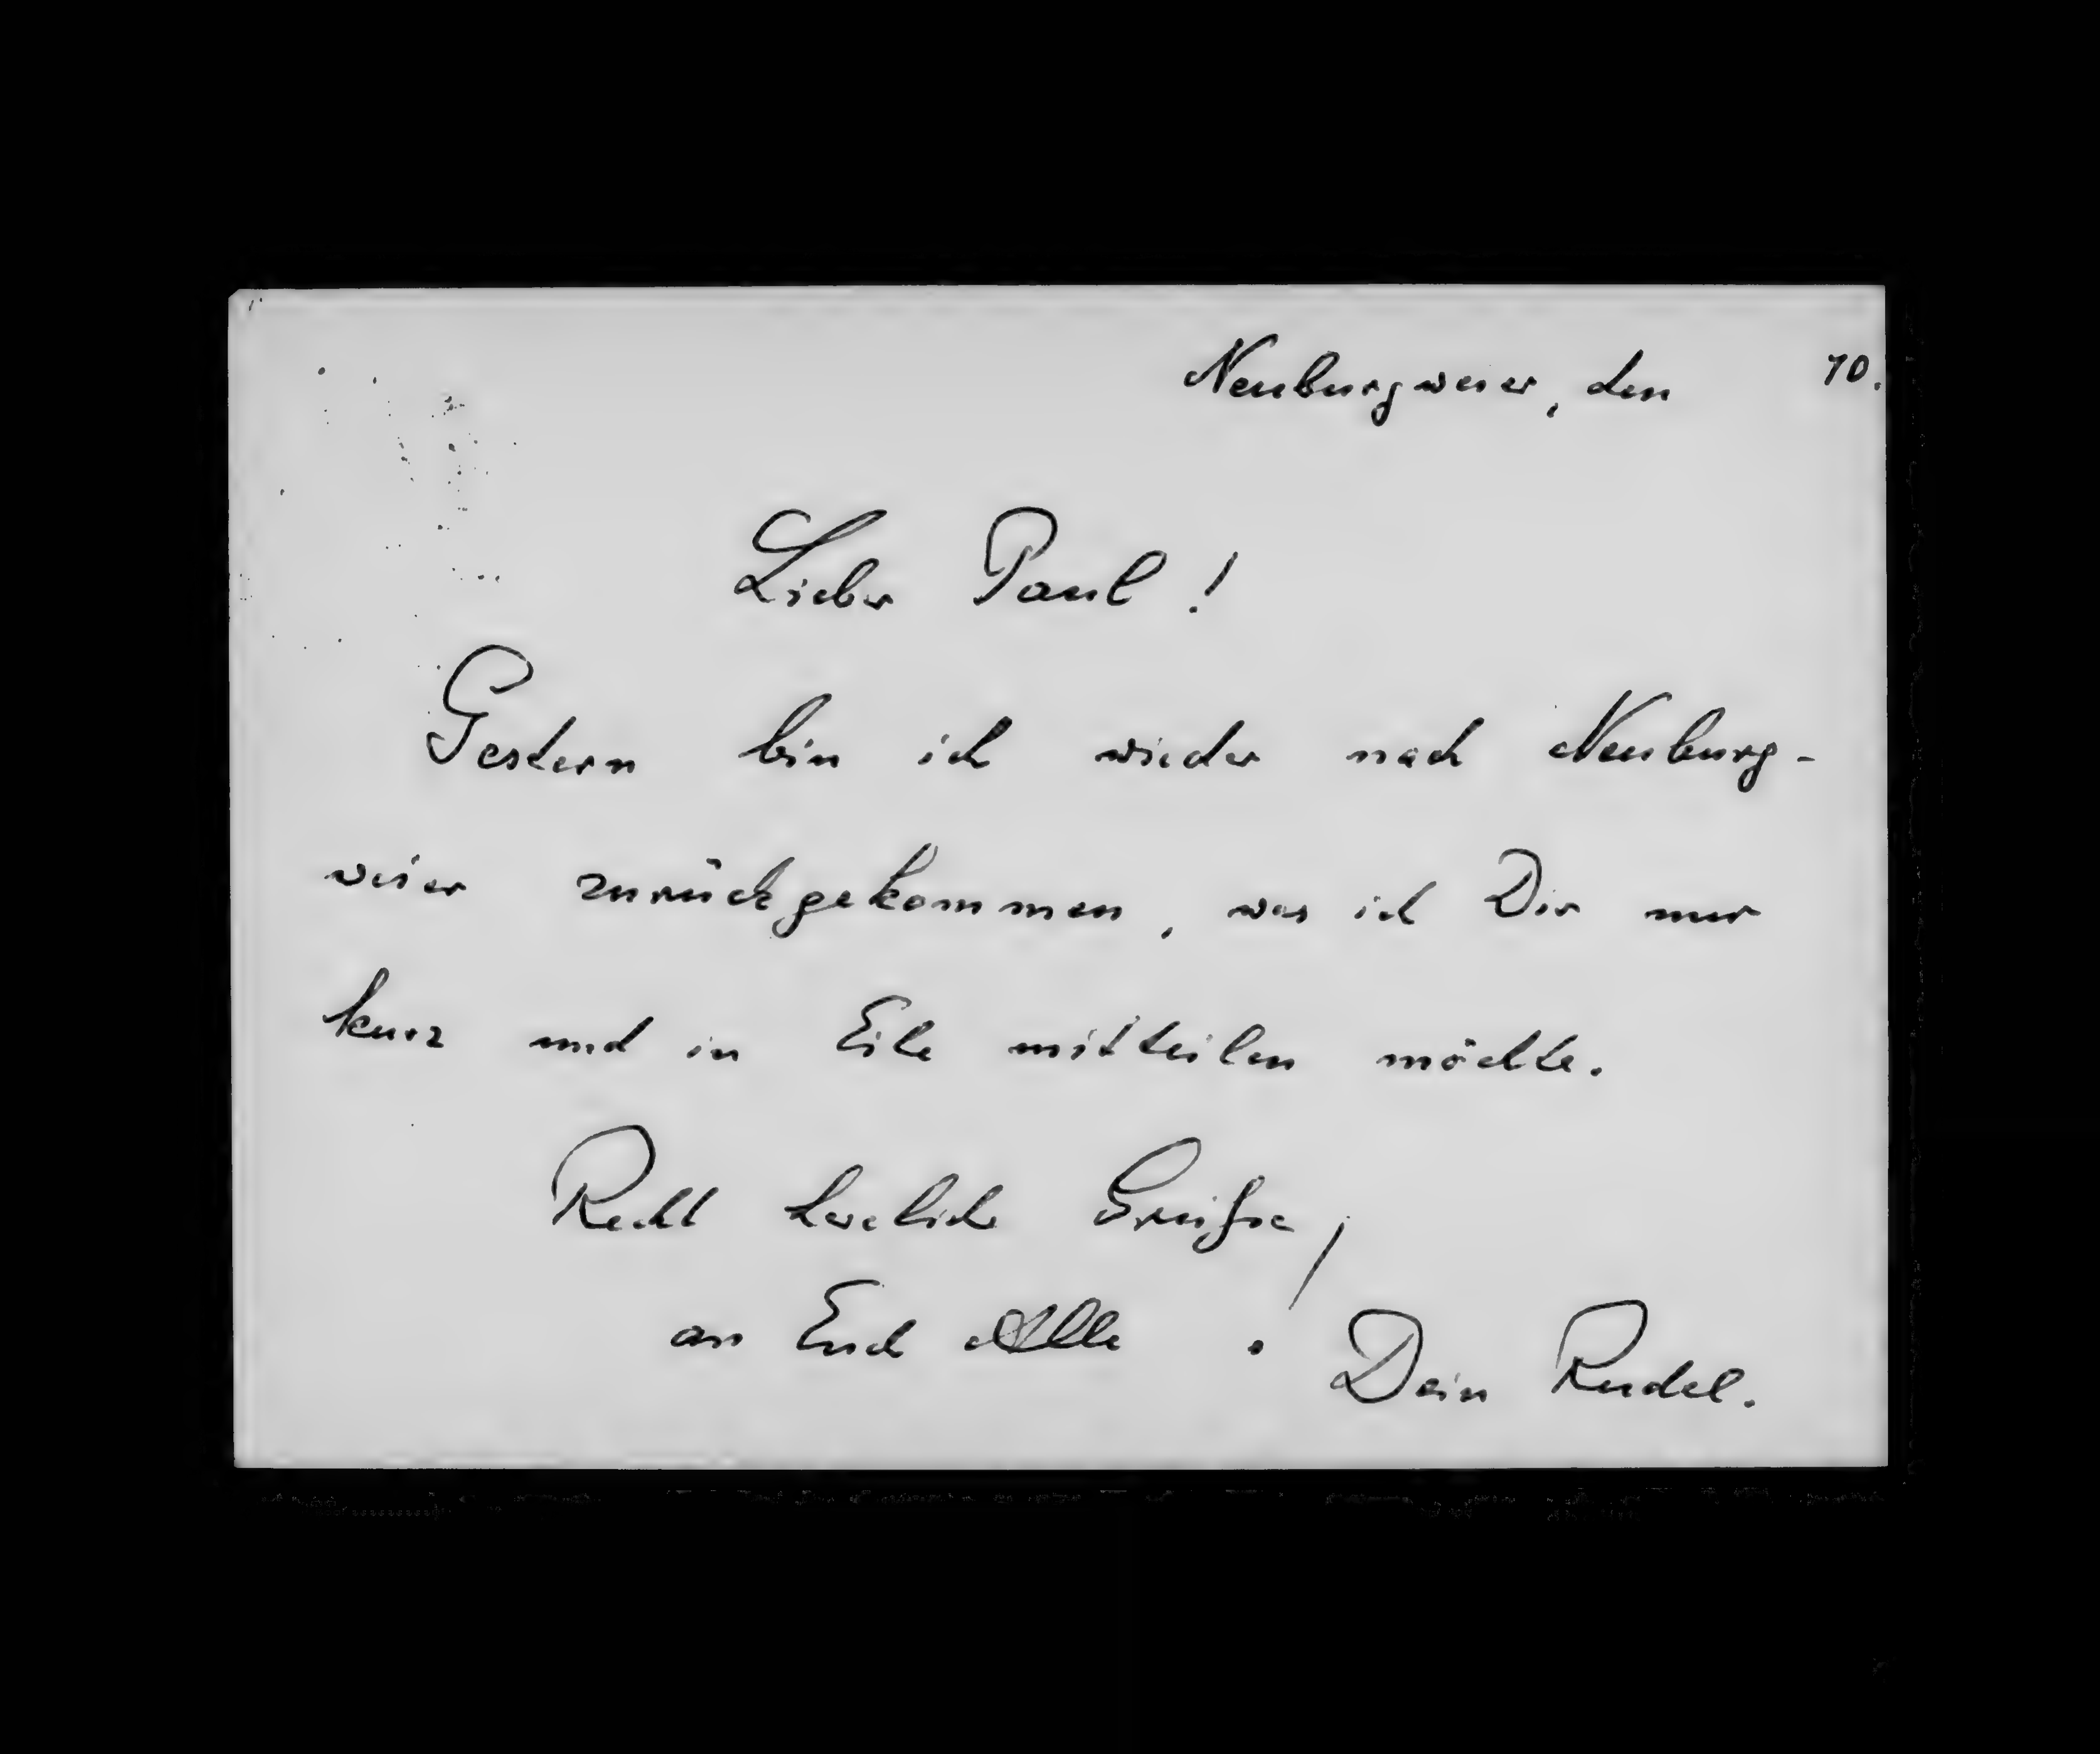 Neuburgweier, den 10.
Lieber Paul !
Gestern bin ich wieder nach Neuburg-
weier zurückgekommen, was ich Dir nur
kurz und in Eile mitteilen möchte.
Recht herzliche Grüße,
an Euch Alle .
Dein Rudel.